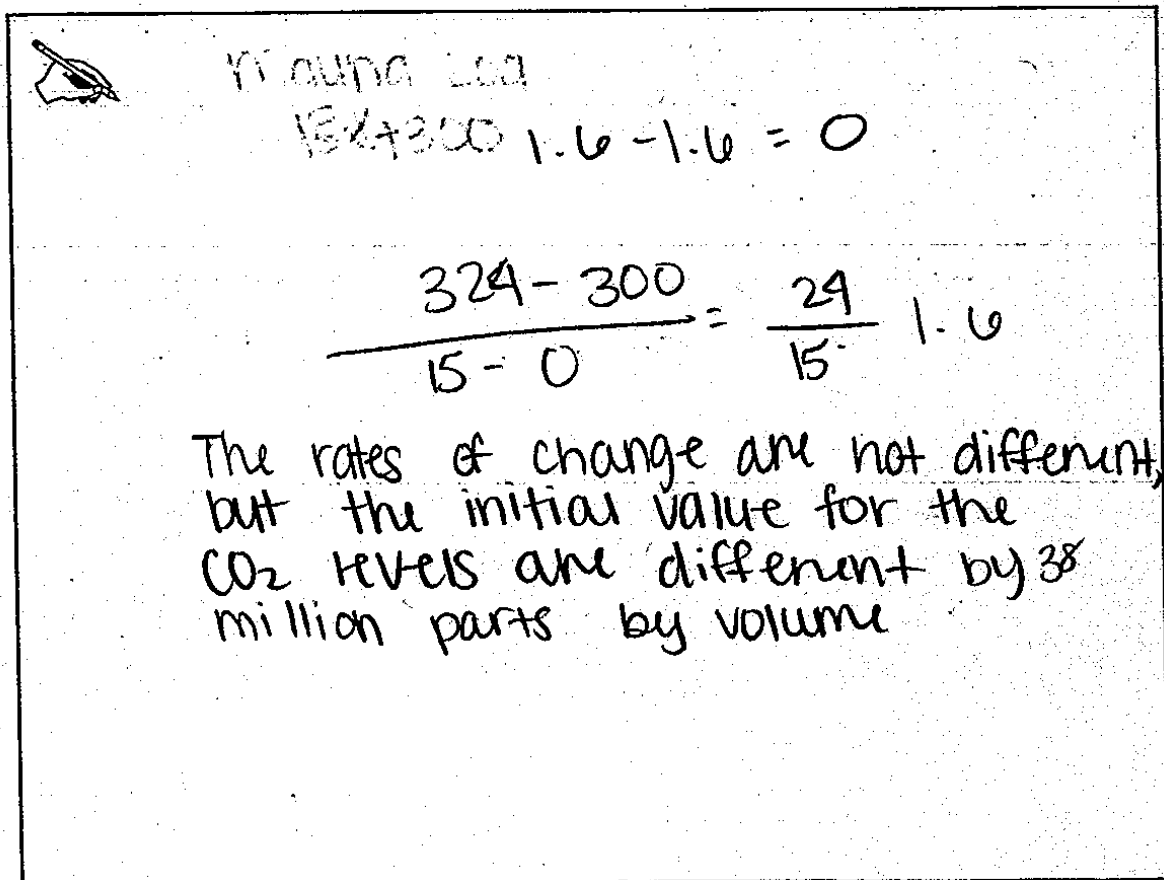 Mauna Loa
1.6 - 1.6 = 0
324 - 300 / 15 - 0 = 24 / 15 1.6
The rates of change are not different,
but the initial value for the
CO2 levels are different by 38
million parts by volume